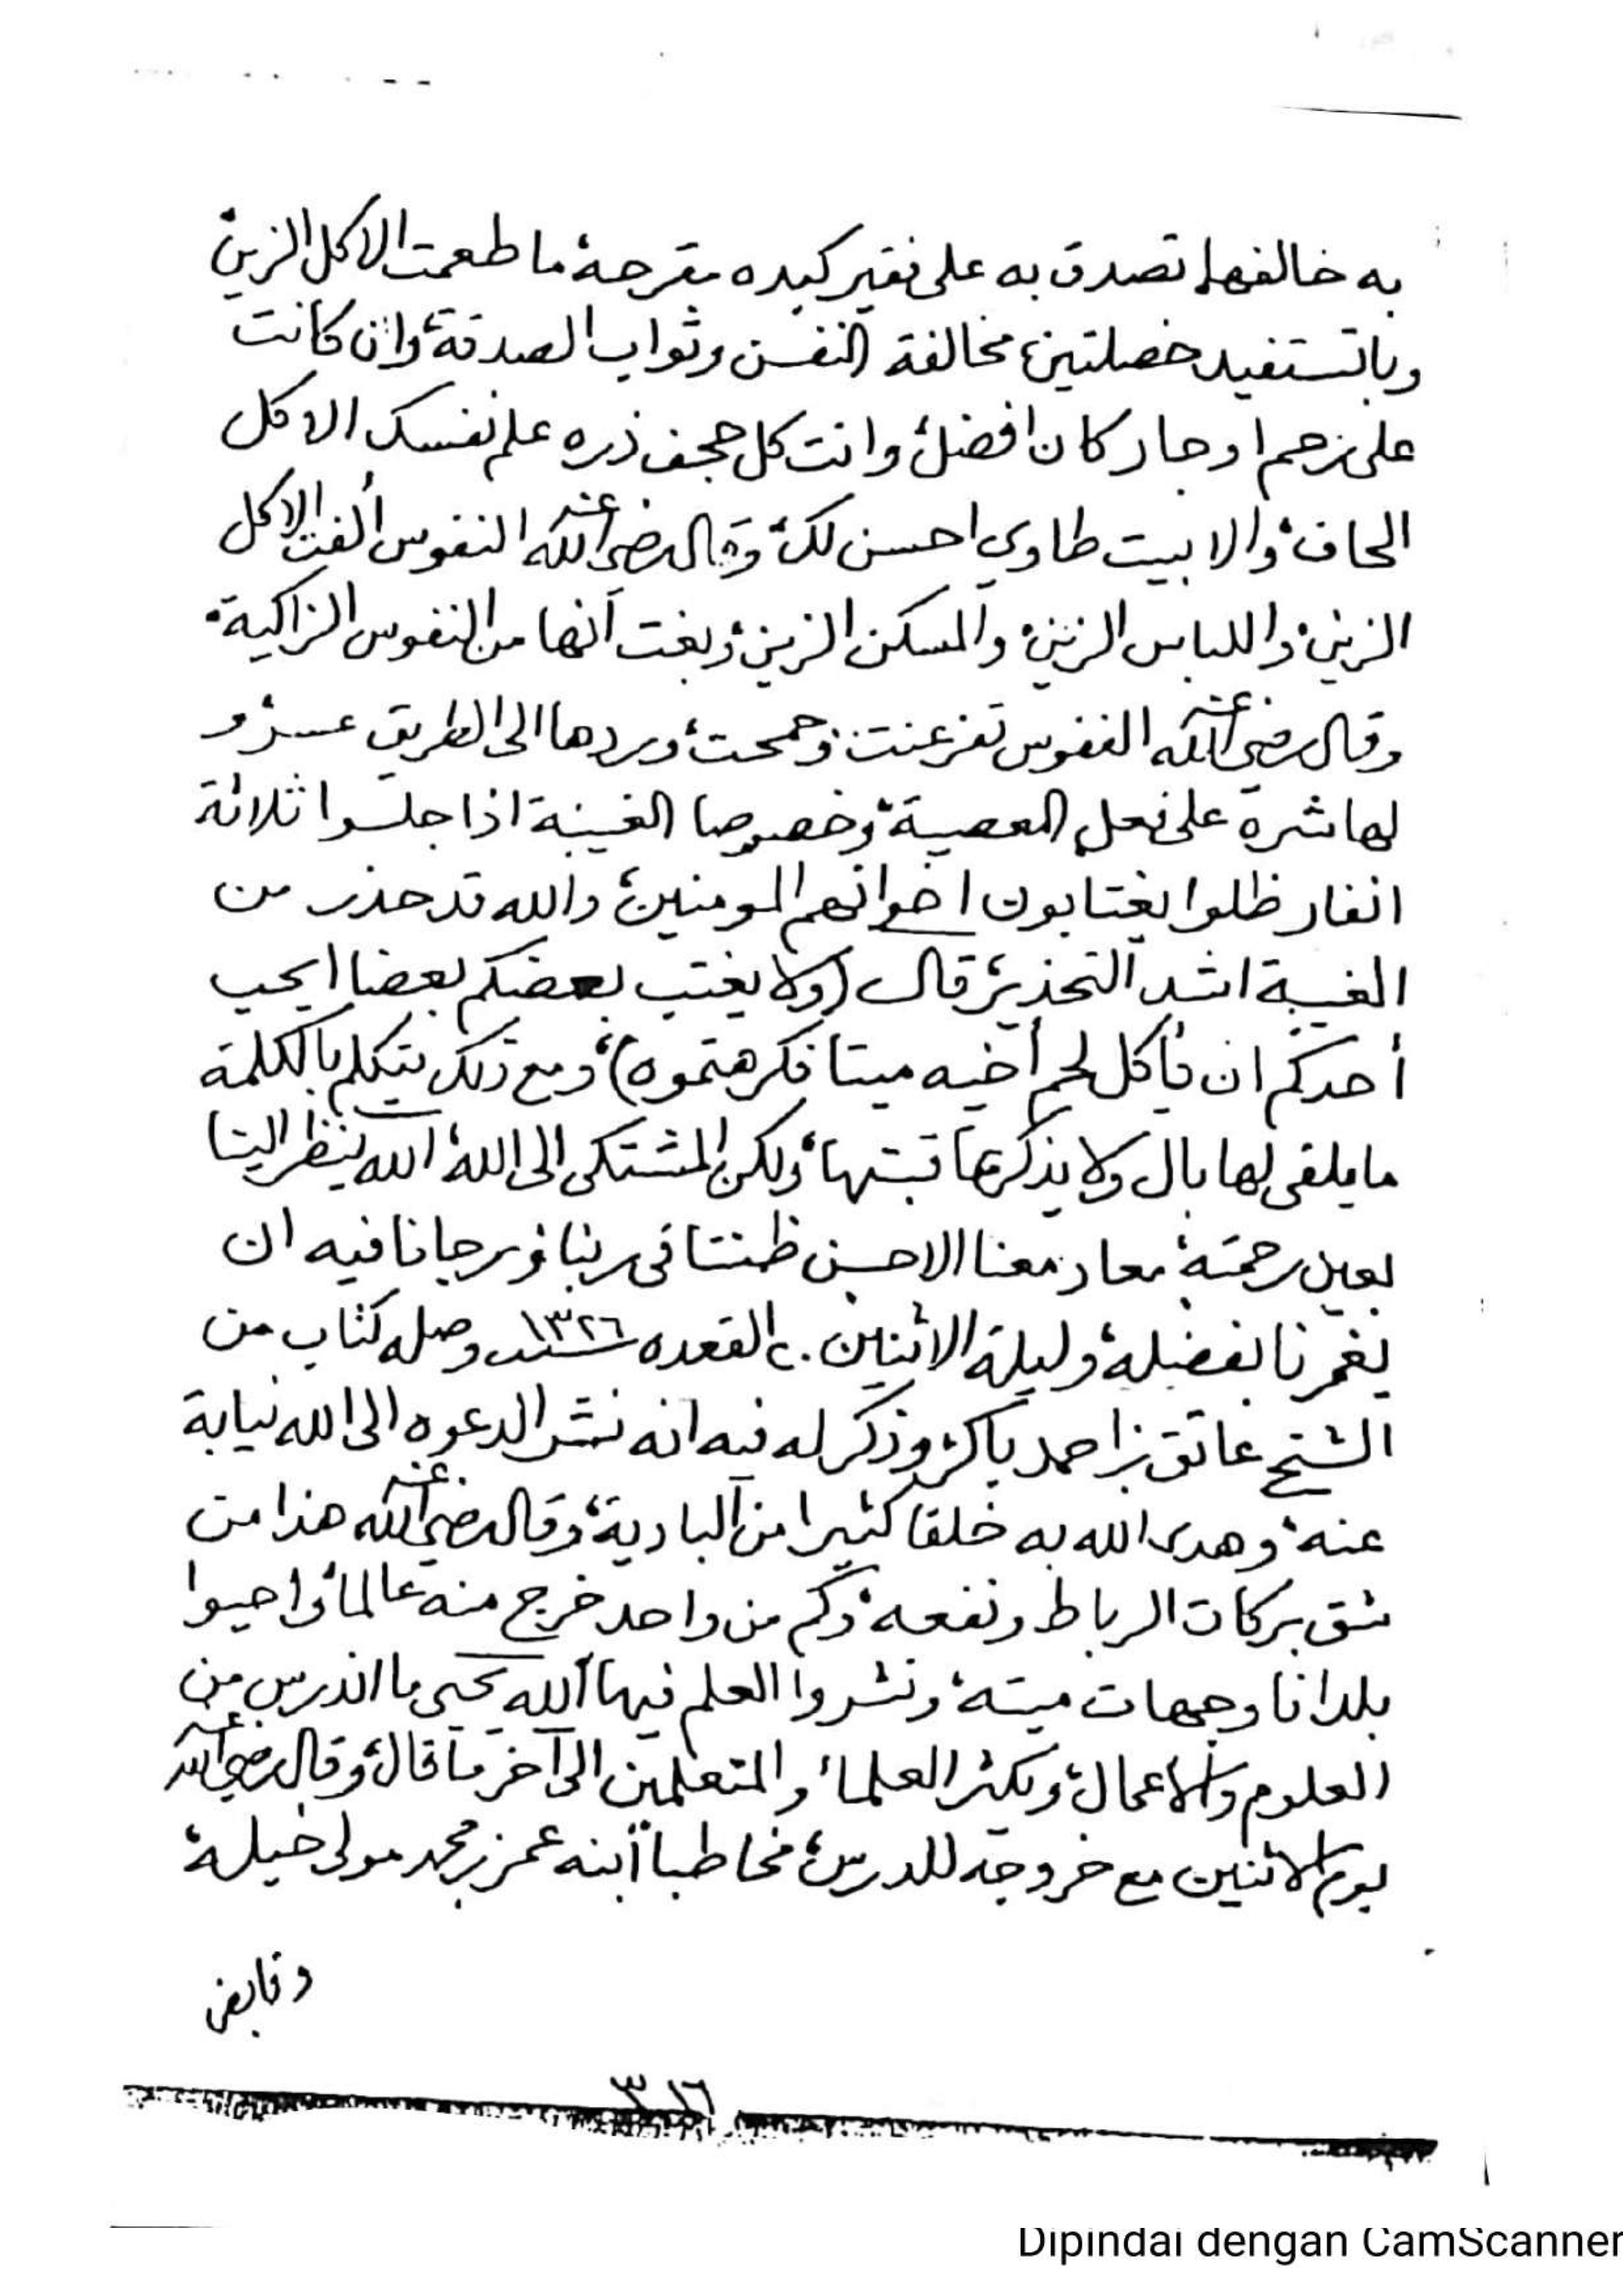 به خالفها تصدق به على فقير كبده مقرحة، ما طعمت الاكل الزين
وباتستفيد خصلتين، مخالفة النفس وثواب الصدقة، وان كانت
على رحم او جار كان افضل، وانت كل حجف ذره علم نفسك الاكل
الحاف، والا بيت طاوي احسن لك، وقال رضي الله عنه النفوس ألفت الاكل
الزين، واللباس الزين، والمسكن الزين، وبغت انها من النفوس الزاكية،
وقال رضي الله عنه النفوس تفرعنت، وجمحت، وردها الى الطريق عسر، و
لها شره على فعل المعصية، وخصوصا الغيبة اذا جلسوا ثلاثة
انفار ظلوا يغتابون اخوانهم المومنين، والله قد حذر من
الغيبة اشد التحذير، قال (ولا يغتب بعضكم بعضا ايحب
أحدكم ان يأكل لحم أخيه ميتا فكرهتموه)، ومع ذلك يتكلم بالكلمة
ما يلقى لها بال ولا يذكر عاقبتها، ولكن المشتكى الى الله، الله ينظر الينا
بعين رحمته، معاد معنا الا حسن ظننا في ربنا، ورجانا فيه ان
يغمرنا بفضله، وليلة الاثنين ٢٠ القعده سنة ١٣٢٦ وصله كتاب من
الشيخ عاتق بن احمد باكر، وذكر له فيه انه نشر الدعوه الى الله نيابة
عنه، وهدى الله به خلقا كثيرا من البادية، وقال رضي الله عنه هذا من
شق بركات الرباط ونفعه، وكم من واحد خرج منه عالما، واحيوا
بلدانا وجهات ميتة، ونشروا العلم فيها الله يحيى ما اندرس من
العلوم والاعمال، ويكثر العلماء والمتعلمين الى آخر ما قال، وقال رضي الله عنه
يوم الاثنين مع خروجه للدرس، مخاطبا ابنه عمر بن محمد مولى خيله،
٣٠١٦
Dipindai dengan CamScanner